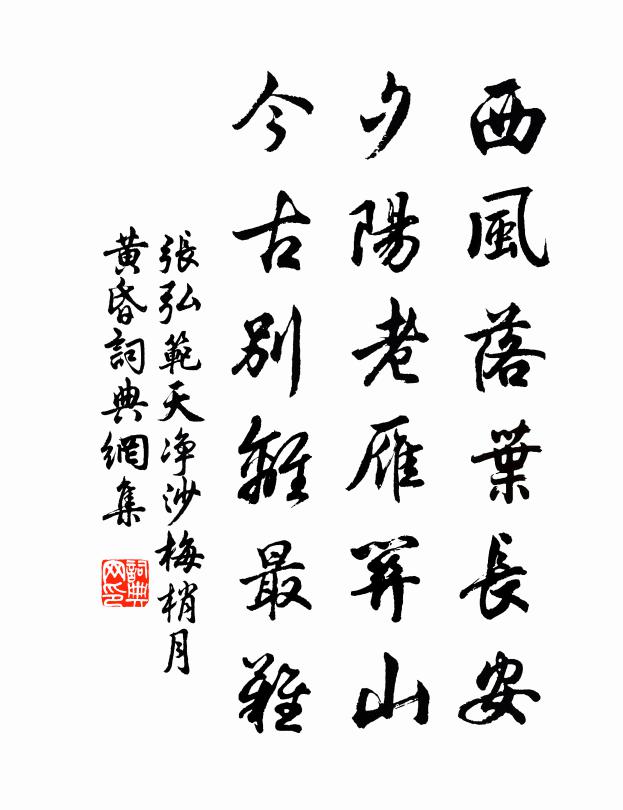 西風落葉長安
夕陽老雁關山
今古別離最難
張弘範天净沙梅梢月
黄昏詞典網集
詞典網印